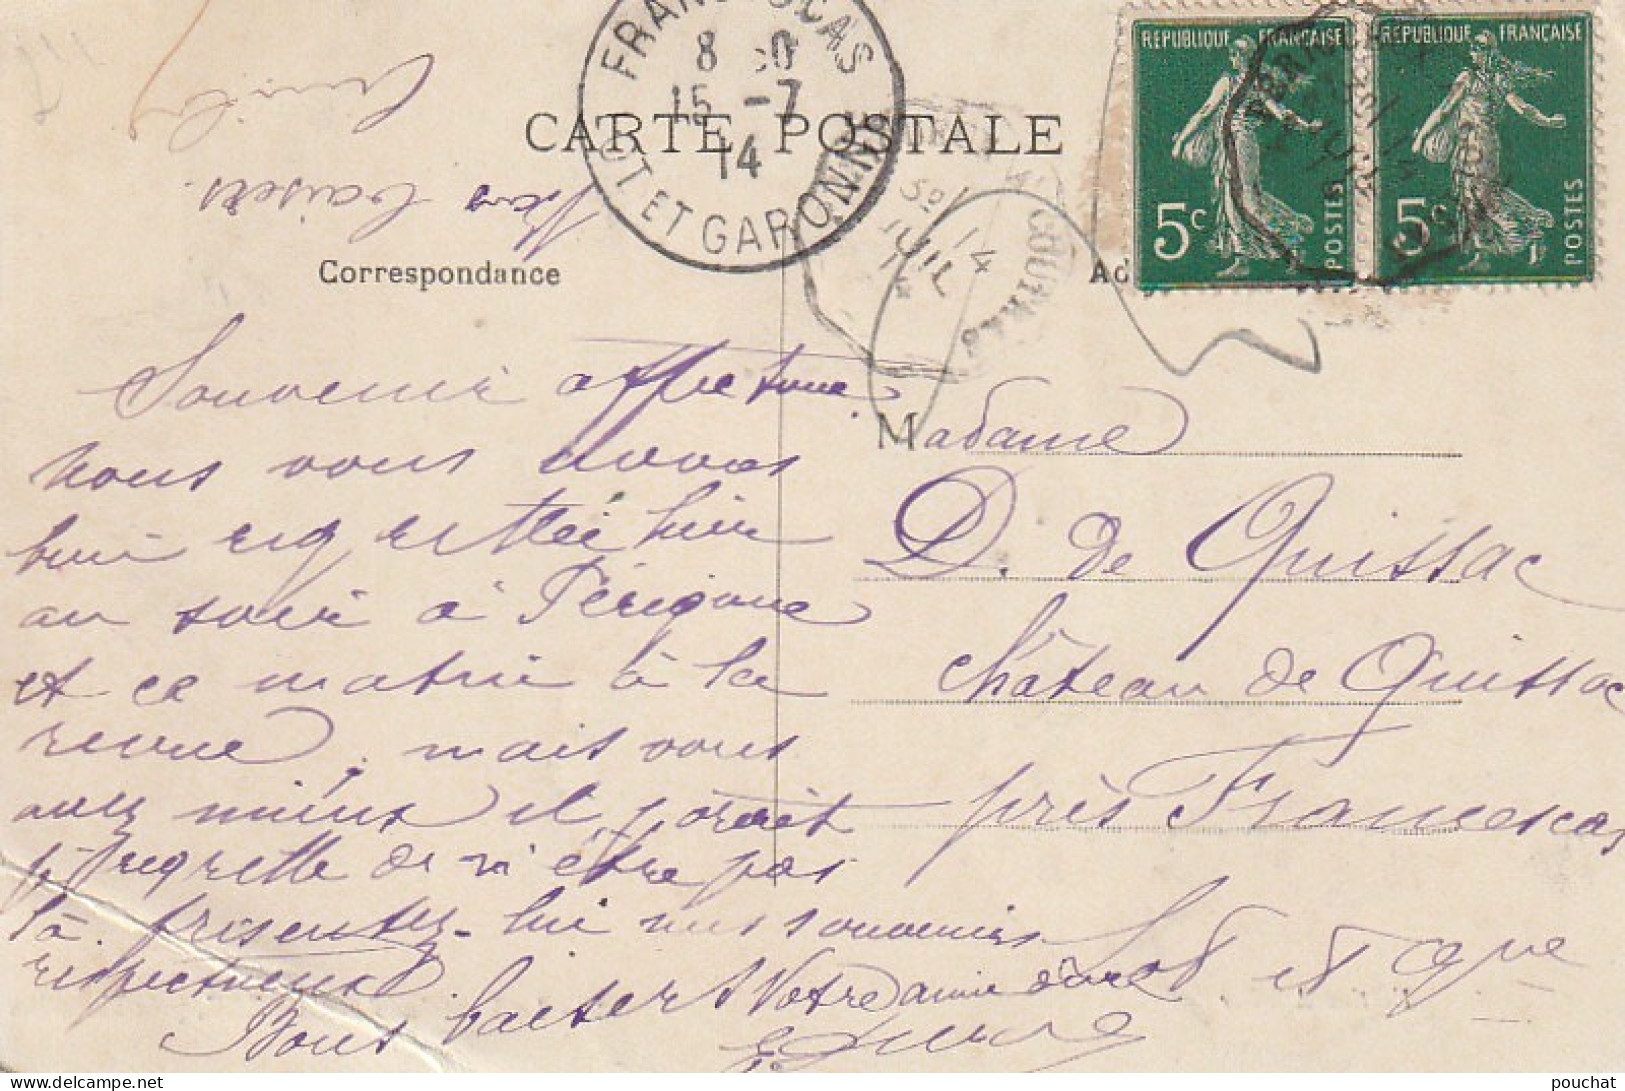 FRANCESCAS
8 30
15 -7
14
LOT ET GARONNE
RÉPUBLIQUE FRANÇAISE
5c
POSTES
RÉPUBLIQUE FRANÇAISE
5c
POSTES
CARTE POSTALE
baisers
Correspondance
Ad
JUIL
14
COUTRAS
Souvenir affectueux
nous vous avons
bien regrettée hier
au soir à Périgueux
et ce matin à la
revue, mais vous
avez mieux il paraît
regrette de n'être pas
là. présentez-lui mes souvenirs
respectueux
Bons baisers Votre amie
Madame
D. de Quissac
Château de Quissac
près Francescas
Lot et Gne
pouchat